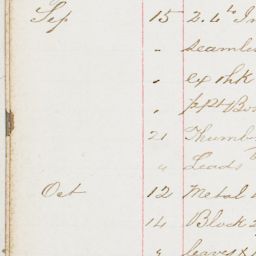 Sep 15 2. 4" In
" seamle
" ex thk
" ppt Bo
21 Thumb
" Leads
Oct 12 Metal
14 Block
" leaves